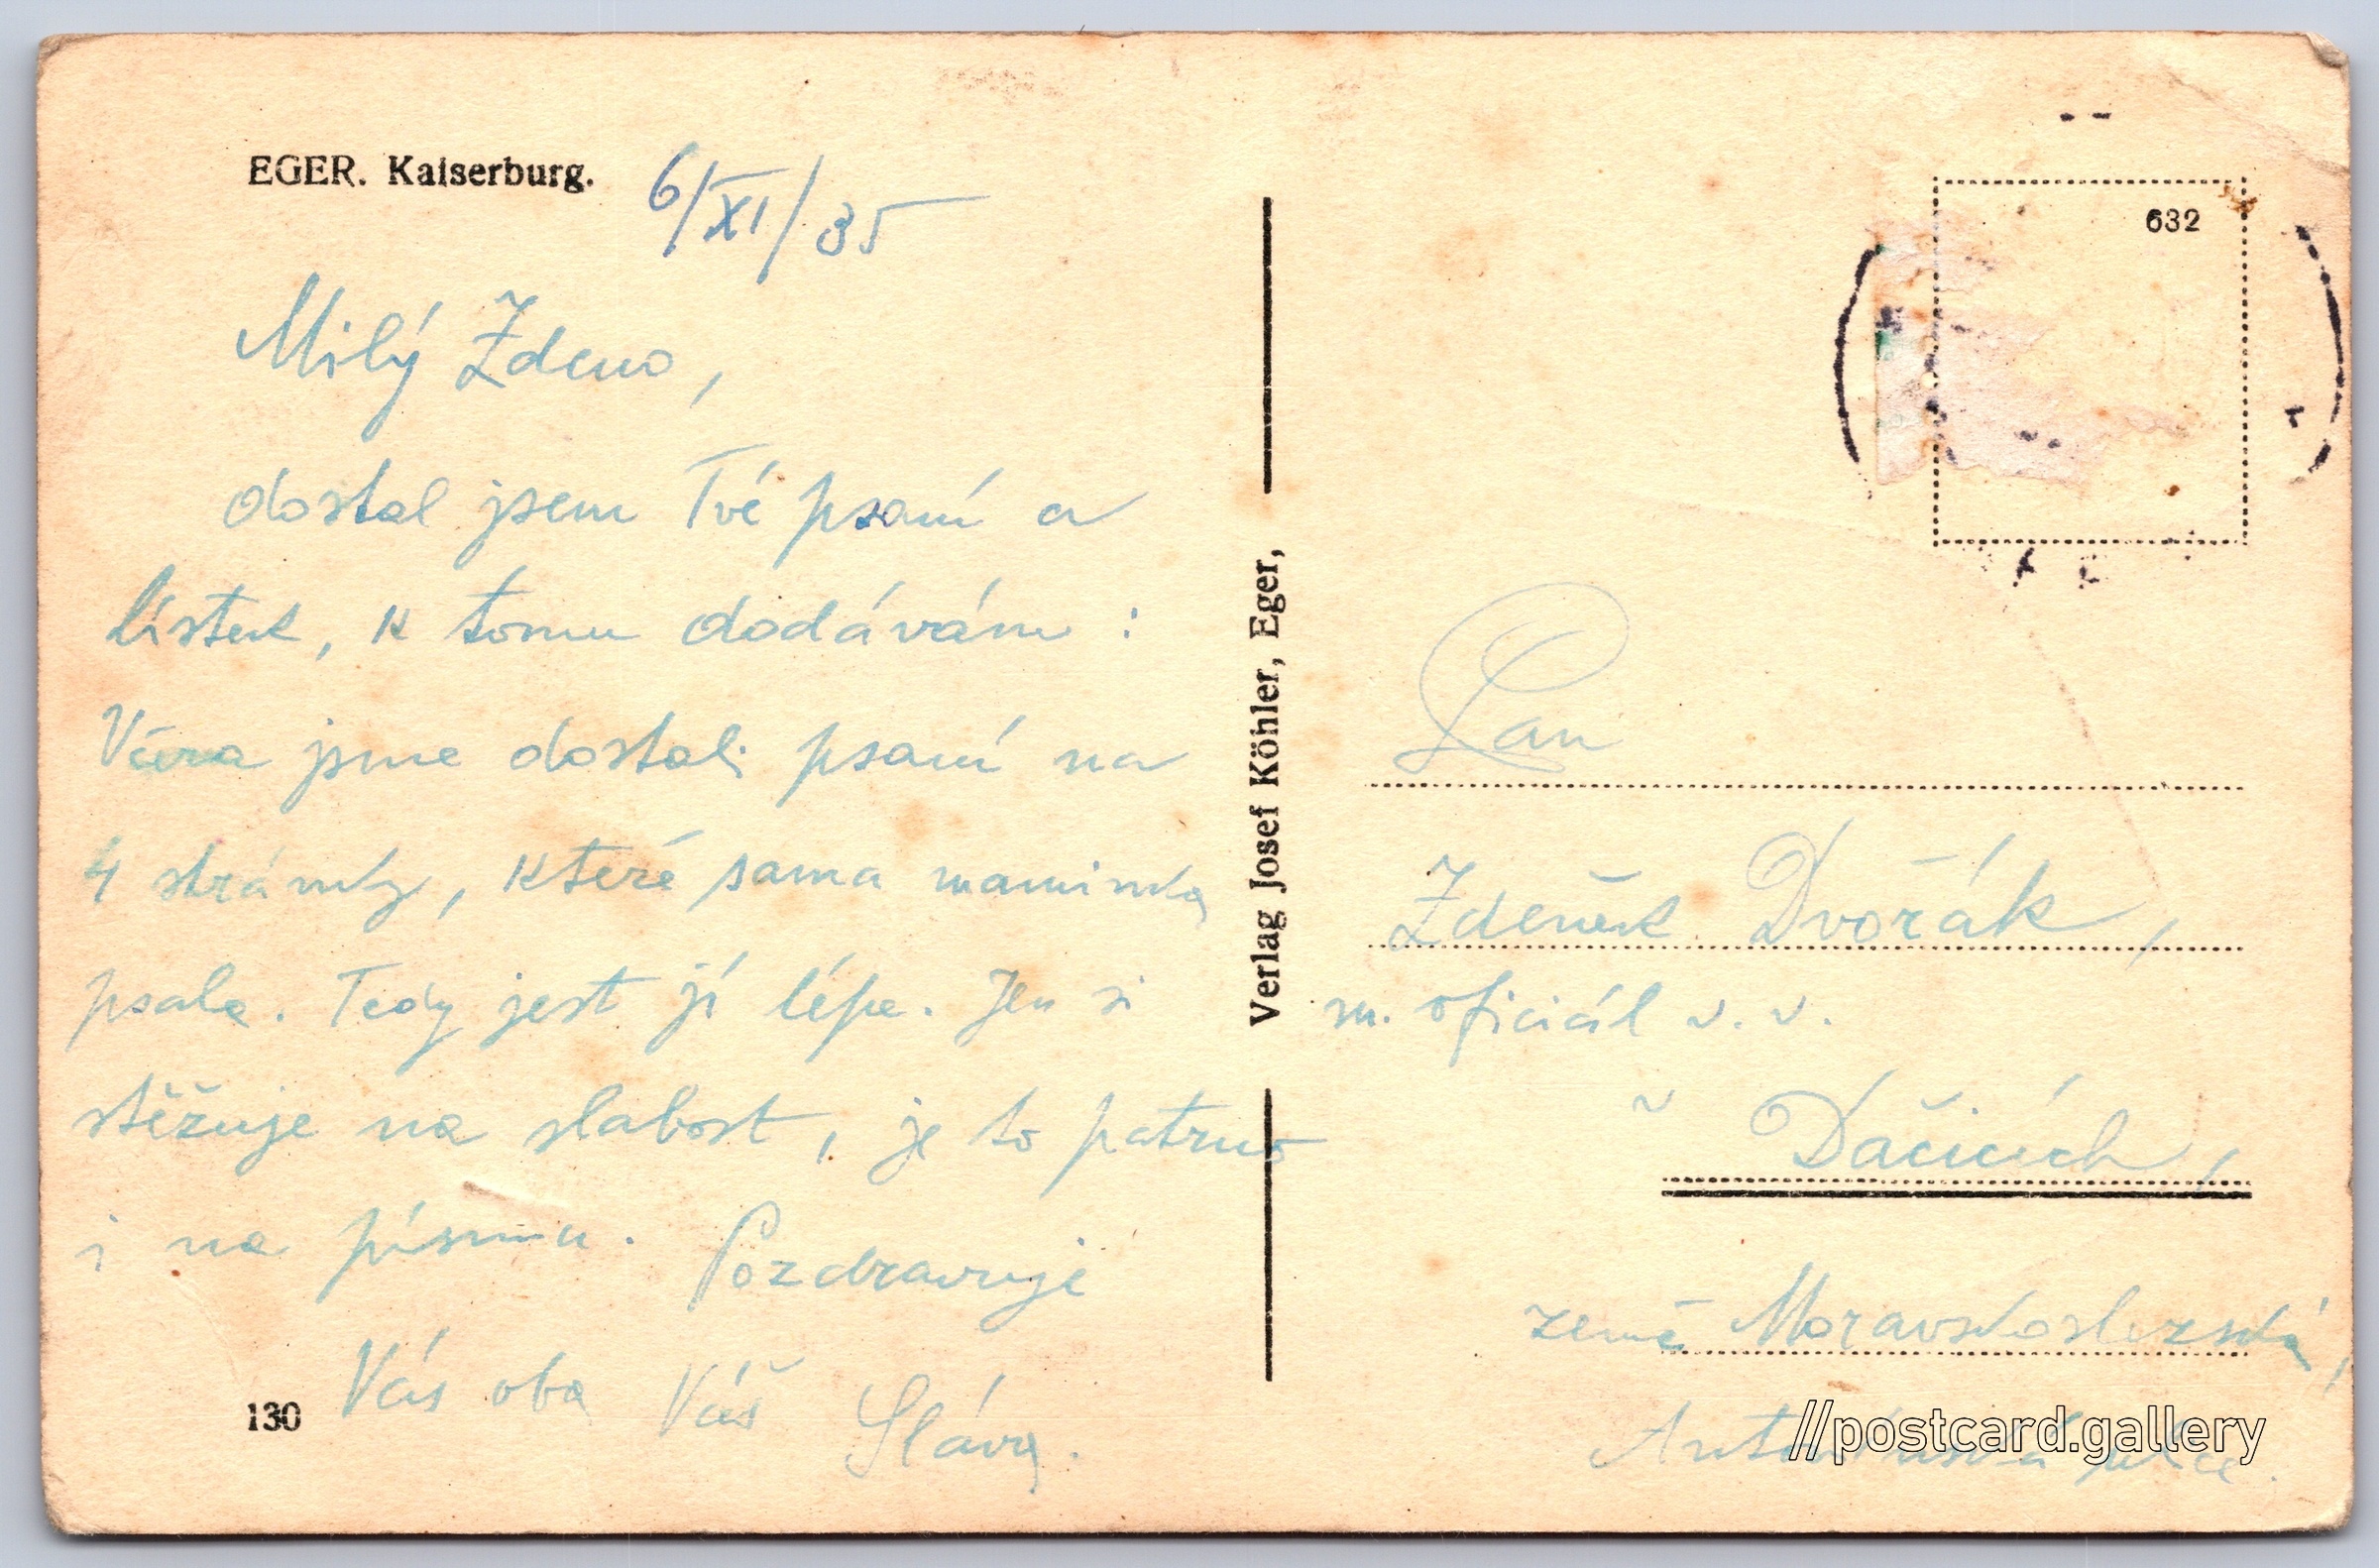 EGER. Kaiserburg.
6/XI/35
Milý Zdeno,
dostal jsem Tvé psaní a
lístek, k tomu dodávám:
Včera jsme dostali psaní na
4 stránky, které sama maminka
psala. Tedy jest jí lépe. Jen si
stěžuje na slabost, je to patrno
i na písmu. Pozdravuje
Vás oba Váš Sláva.
130
Verlag Josef Köhler, Eger,
632
Pan
Zdeněk Dvořák,
m. oficiál v. v.
v Dačicích,
země Moravskoslezská,
Antonínská ulice.
//postcard.gallery